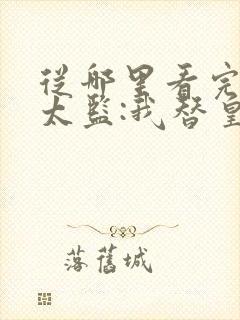 從哪里看完
太監:我替皇
落舊城